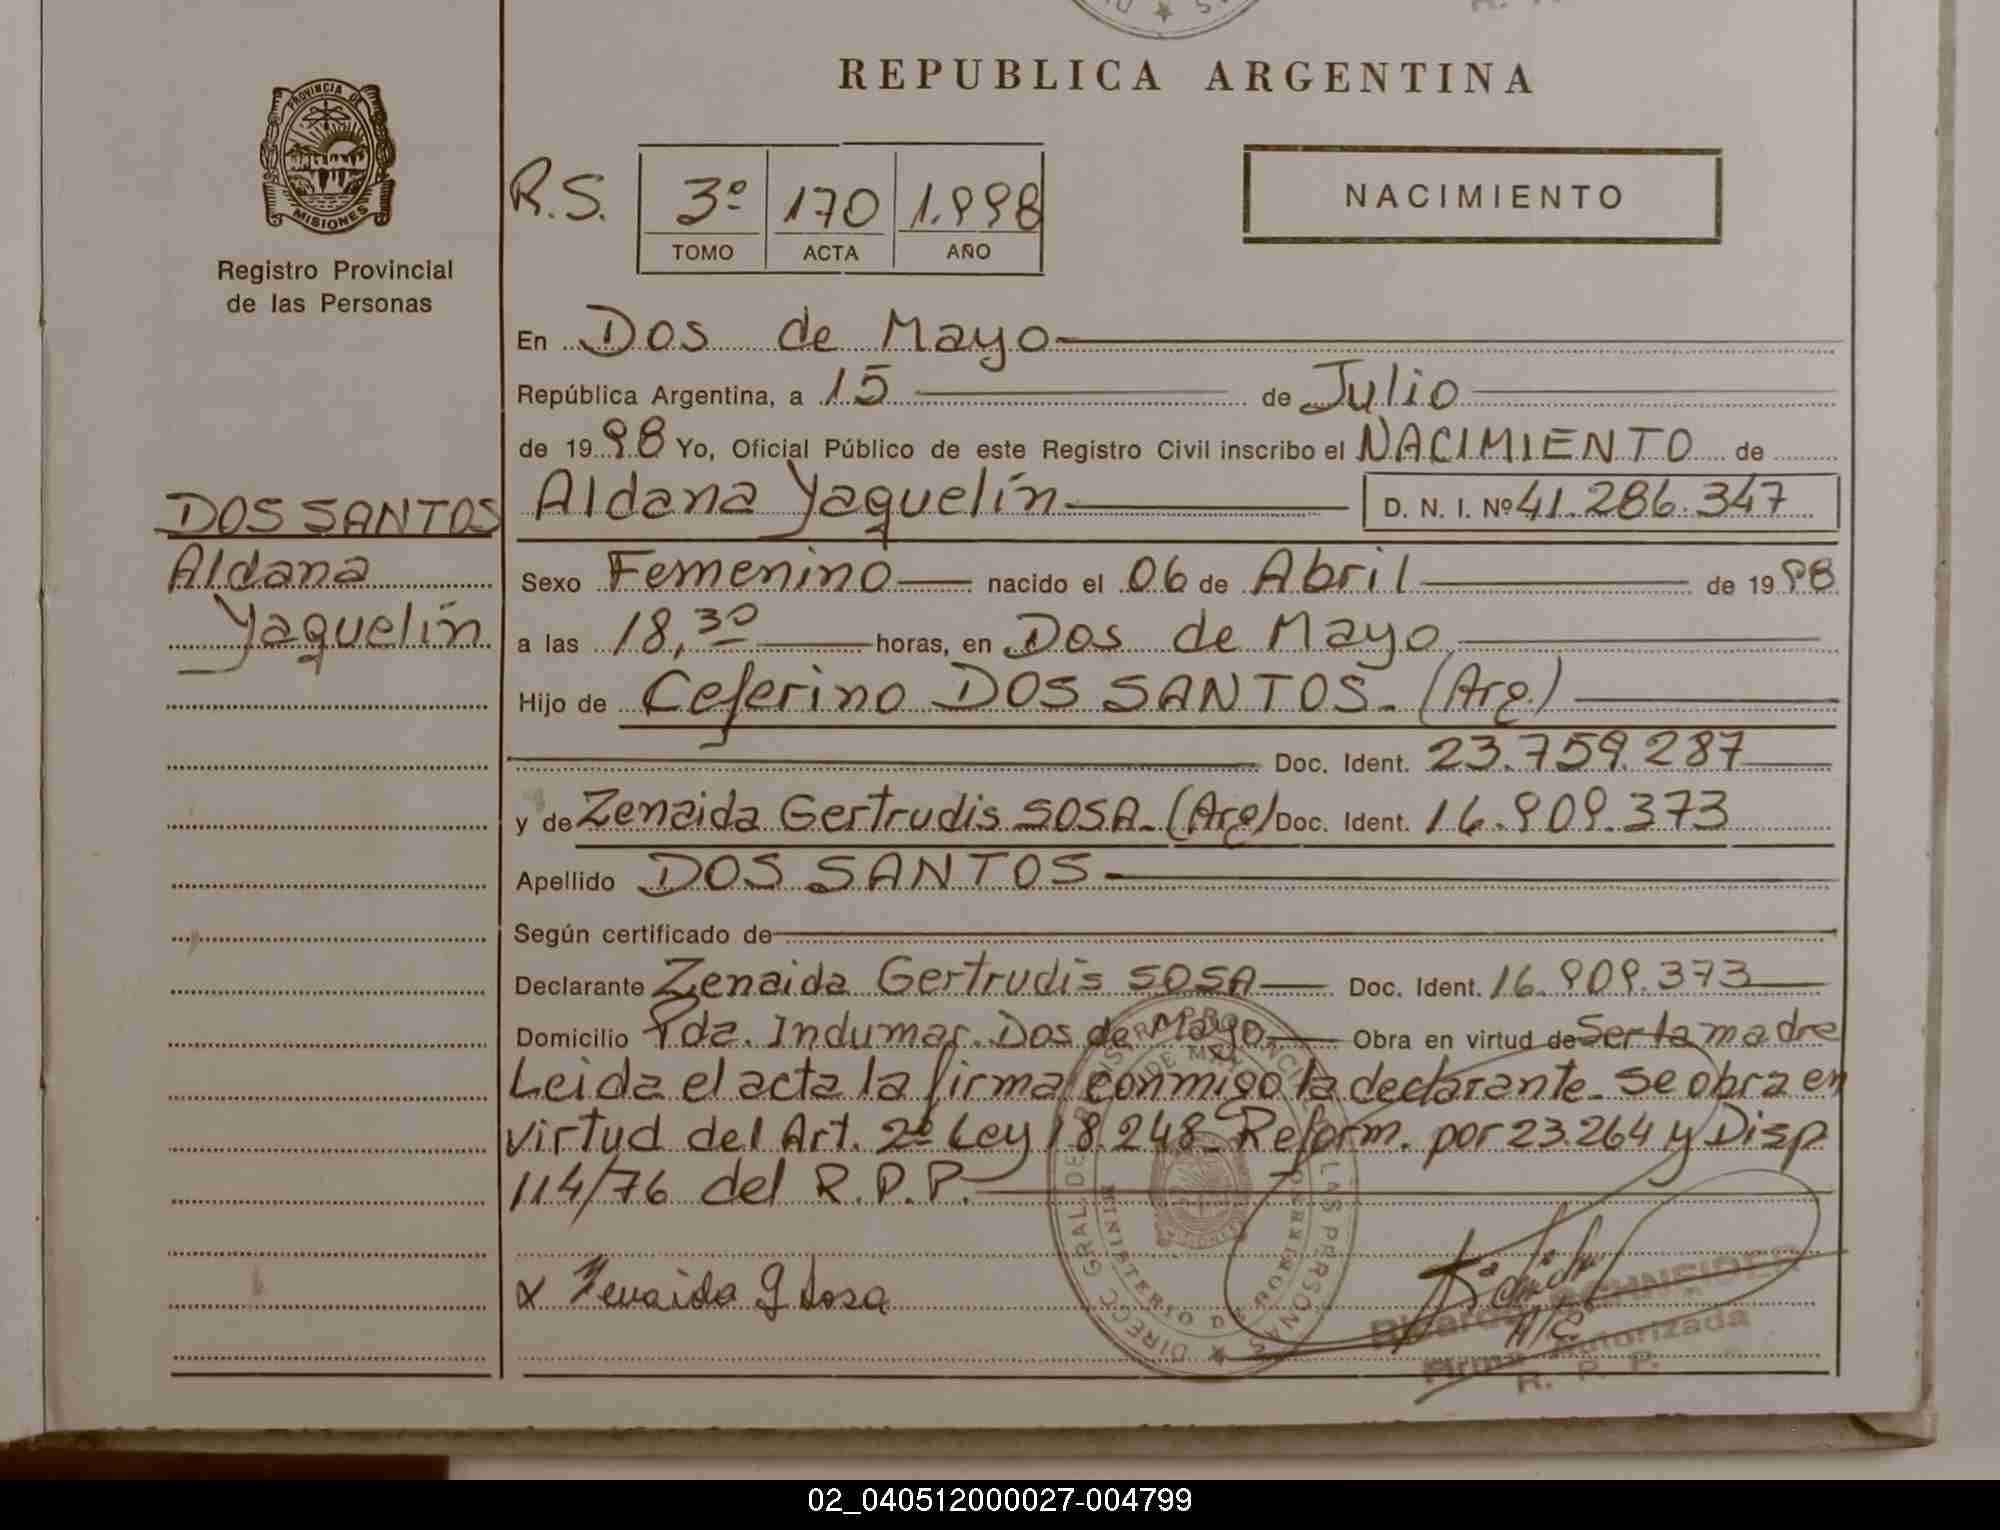 REPUBLICA ARGENTINA
PROVINCIA DE
MISIONES
Registro Provincial
de las Personas
R.S.
3º 170 1.998
TOMO ACTA AÑO
NACIMIENTO
En Dos de Mayo
República Argentina, a 15 de Julio
de 1998 Yo, Oficial Público de este Registro Civil inscribo el NACIMIENTO de
DOS SANTOS
Aldana
Yaquelín
Aldana Yaquelín D. N. I. Nº 41.286.347
Sexo Femenino nacido el 06 de Abril de 1998
a las 18,30 horas, en Dos de Mayo
Hijo de Ceferino DOS SANTOS. (Arg.)
Doc. Ident. 23.759.287
y de Zenaida Gertrudis SOSA. (Arg) Doc. Ident. 16.909.373
Apellido DOS SANTOS
Según certificado de
Declarante Zenaida Gertrudis SOSA Doc. Ident. 16.909.373
Domicilio Pda. Indumar. Dos de Mayo Obra en virtud de Ser la madre
Leida el acta la firma conmigo la declarante. Se obra en
virtud del Art. 2º Ley 18.248 Reform. por 23.264 y Disp.
114/76 del R.P.P.
x Zenaida G Sosa
Ricardo SCHNEIDER
Firma Autorizada
R. P. P.
02_040512000027-004799